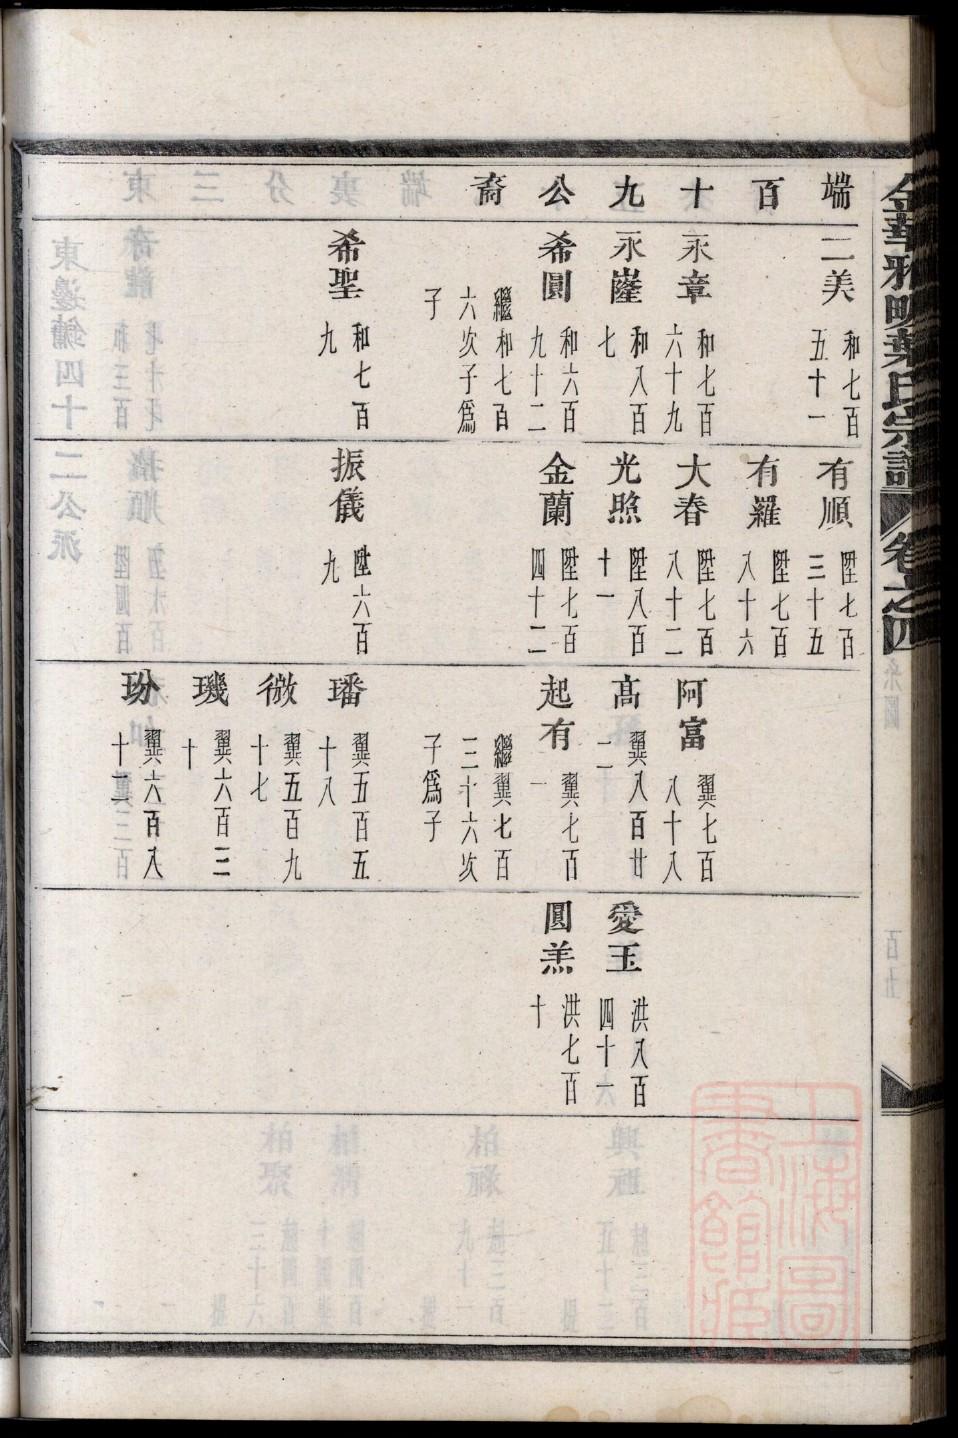 金華雅畈葉氏宗譜 卷之四
端百十九公裔
二美 和七百五十一
永章 和七百六十九
永隆 和八百七
希圓 和六百九十二
繼和七百六次子爲子
希聖 和七百九
有順 陞七百三十五
有羅 陞七百八十六
大春 陞七百八十二
光煦 陞八百十一
金蘭 陞七百四十二
振儀 陞六百九
阿富 翼七百八十八
高 翼八百廿二
起有 翼七百一
繼翼七百三十六次子爲子
璠 翼五百五十八
微 翼五百九十七
璣 翼六百三十
玢 翼六百八十二
愛玉 洪八百四十六
圓羔 洪七百十
上海圖書館藏